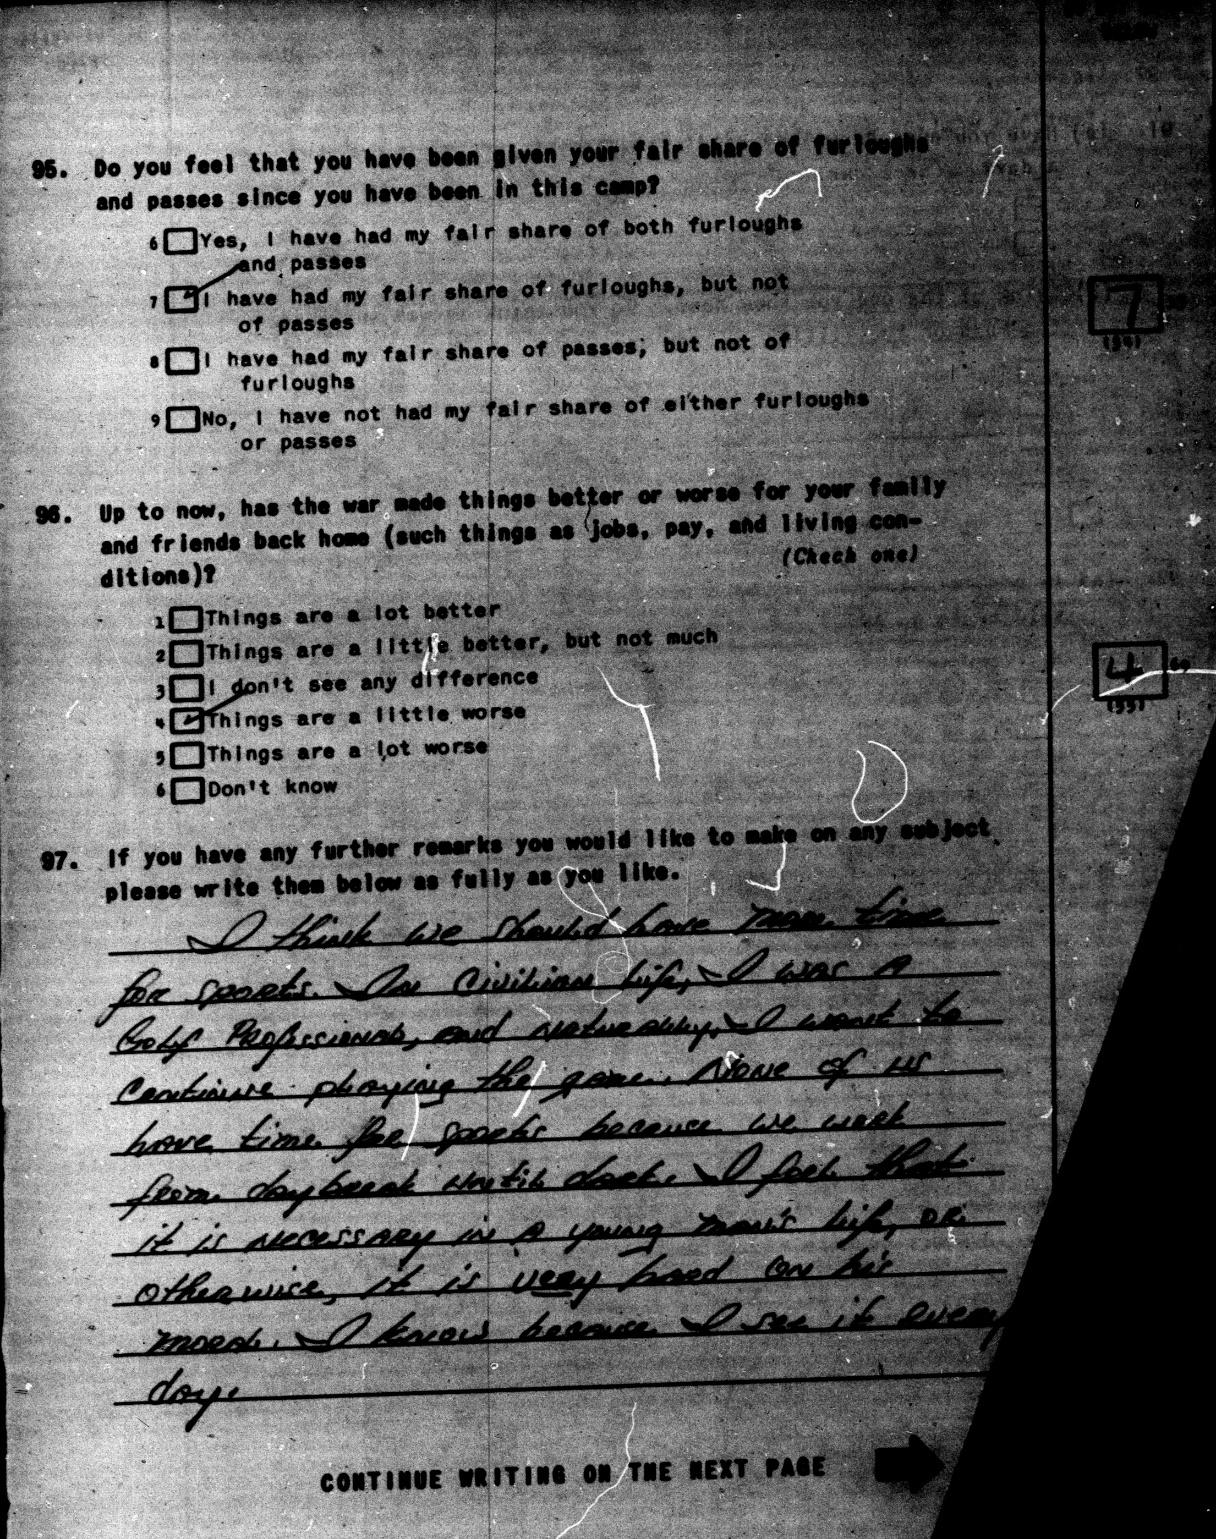 95. Do you feel that you have been given your fair share of furloughs
and passes since you have been in this camp?
6 Yes, I have had my fair share of both furloughs
and passes
7 I have had my fair share of furloughs, but not
of passes
8 I have had my fair share of passes; but not of
furloughs
9 No, I have not had my fair share of either furloughs
or passes
7
(54)
96. Up to now, has the war made things better or worse for your family
and friends back home (such things as jobs, pay, and living con-
ditions)?
(Check one)
1 Things are a lot better
2 Things are a little better, but not much
3 I don't see any difference
4 Things are a little worse
5 Things are a lot worse
6 Don't know
4
(55)
97. If you have any further remarks you would like to make on any subject
please write them below as fully as you like.
I think we should have more time
for sports. In Civilian life, I was a
Golf Professional, and naturally, I want to
continue playing the game. None of us
have time for sports because we work
from daybreak until dark. I feel that
it is necessary in a young man's life, or
otherwise, it is very hard on his
moral. I know because I see it every
day.
CONTINUE WRITING ON THE NEXT PAGE